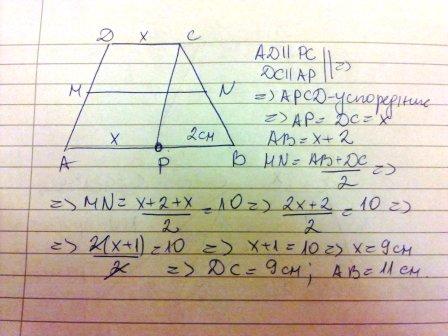 D x C
AD || PC
DC || AP || =>
M N
=> APCD - успоредник
=> AP = DC = x
x 2см
AB = x + 2
A P B
MN = (AB + DC)/2 =>
=> MN = (x + 2 + x)/2 = 10 => (2x + 2)/2 = 10 =>
=> 2(x + 1)/2 = 10 => x + 1 = 10 => x = 9 см
=> DC = 9 см; AB = 11 см.